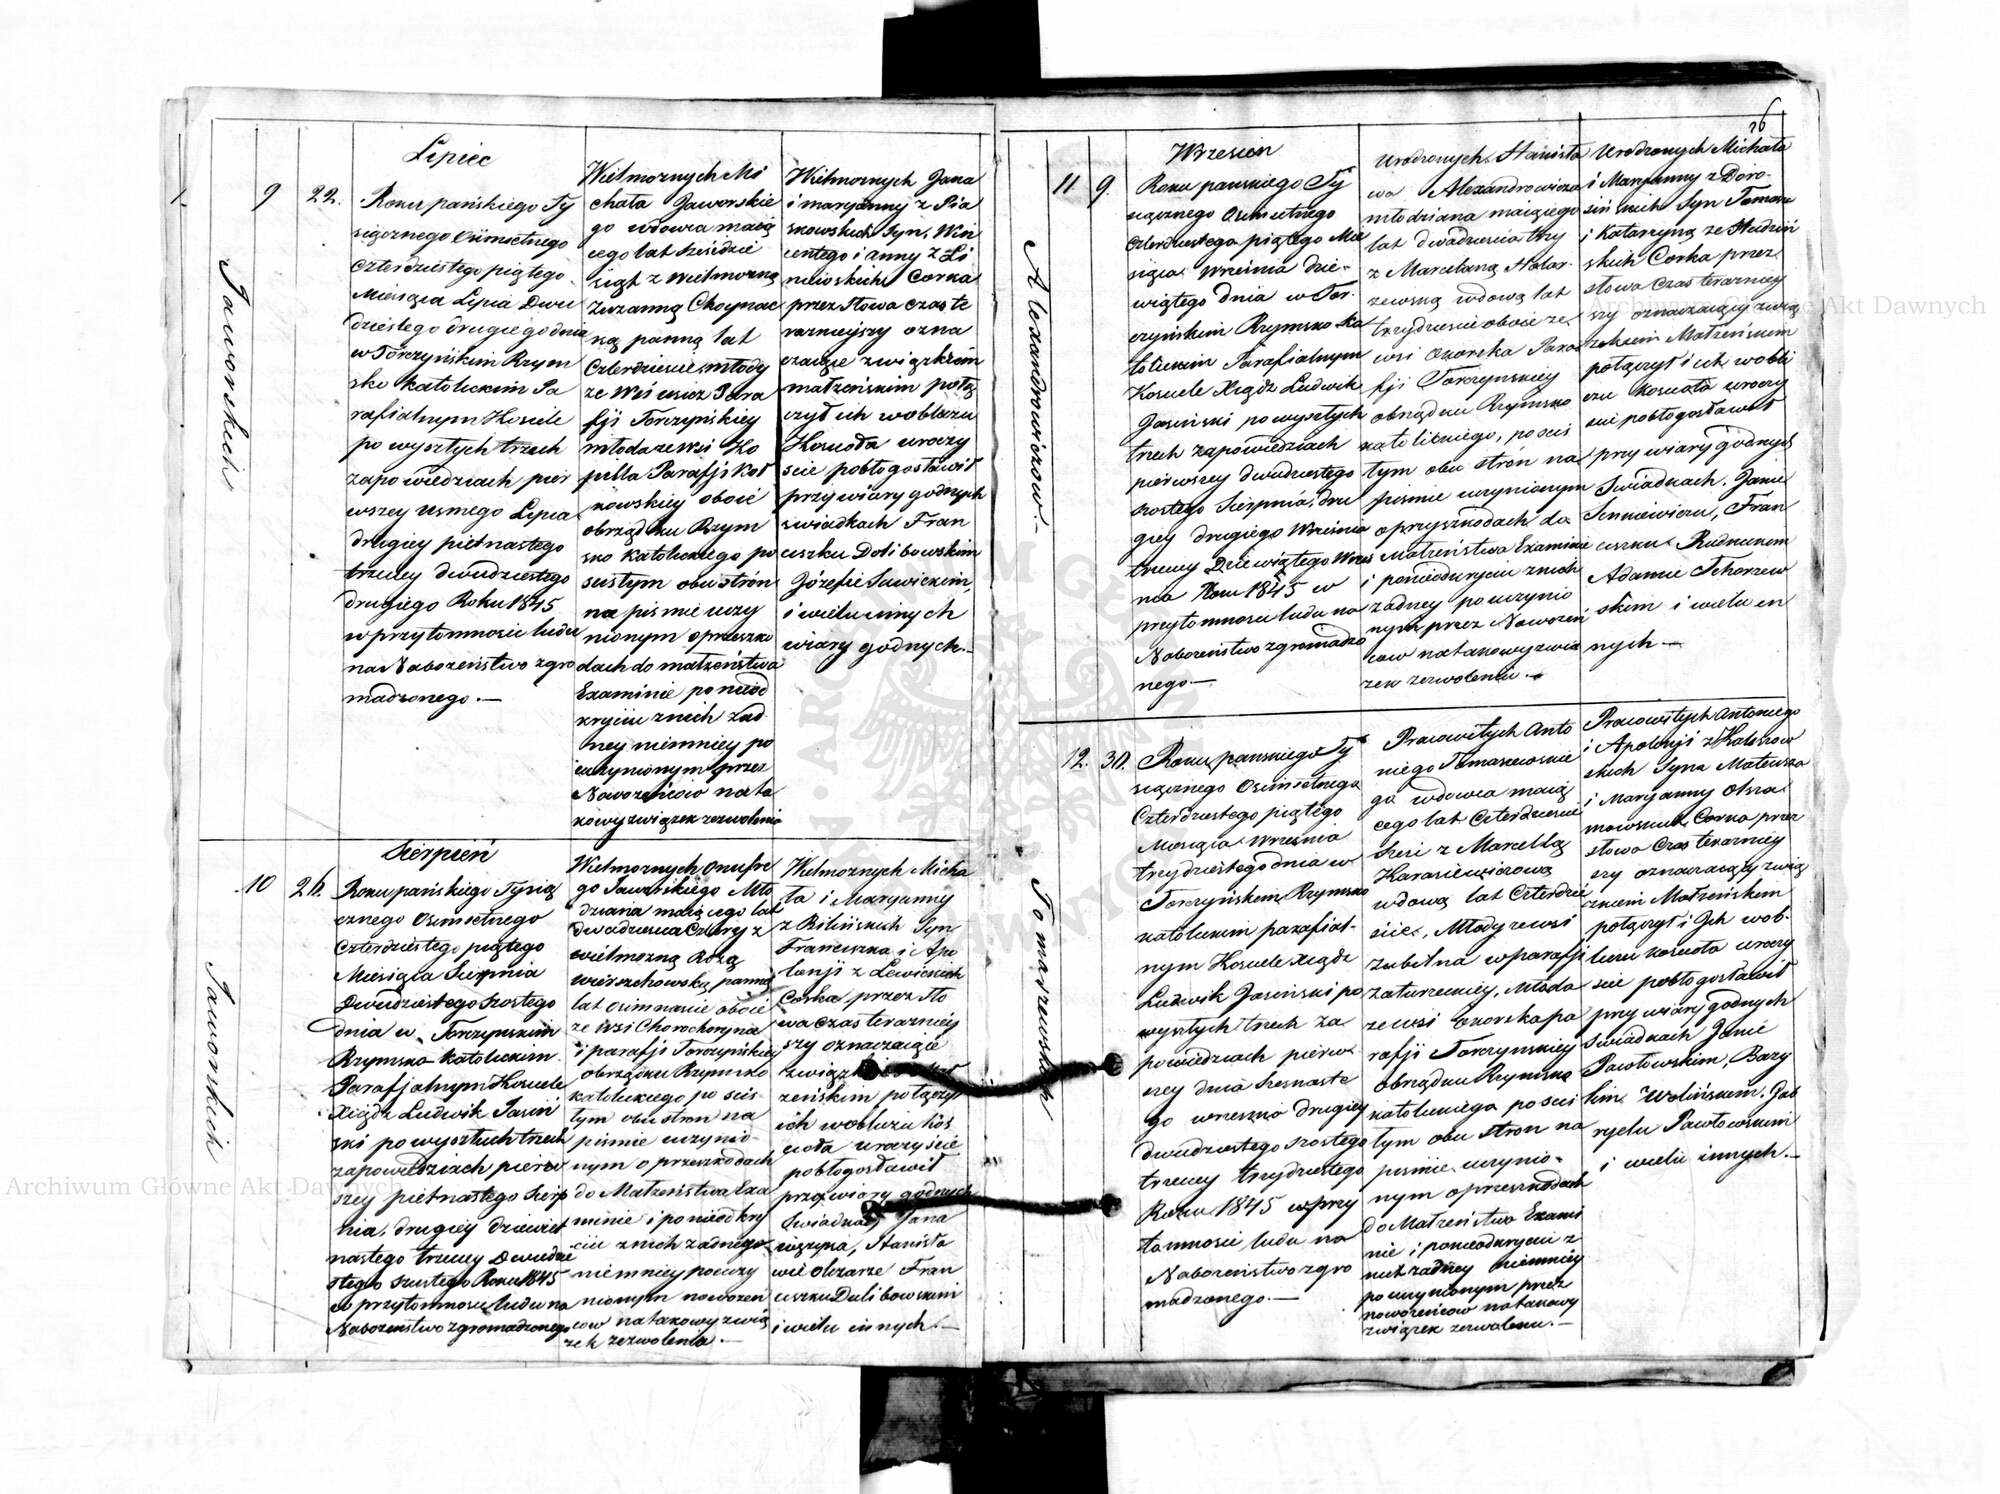 Lipiec
1.
9
22.
Jaworskich
Roku pańskiego Ty
siącznego Ośmsetnego
czterdziestego piątego
Miesiąca Lipca Dwu
dziestego drugiego dnia
w Torczyńskim Rzym
sko katolickim Pa
rafialnym Kosciele
po wyszłych trzech
zapowiedziach pier
wszey usmego Lipca
drugiey pietnastego
trzeciey dwudziestego
drugiego Roku 1845
w przytomnosci ludu
na Nabożeństwo zgro
madzonego.—
Wielmoznych Mi
chała Jaworskie
go wdowca maią
cego lat sześdzie
siąt z Wielmozną
Zuzanną Choynac
ką panną lat
czterdziescie młody
ze Wsi Para
fji Torczyńskiey
młoda ze Wsi Ko
pilla Parafji Koł
kowskiey oboie
obrządku Rzym
sko Katolickiego po
scisłym obu strón
na pismie uczy
nionym o przeszko
dach do małżeństwa
Examinie po nieod
kryciu z nich żad
ney niemniey po
uczynionym przez
Nowożeńców na ta
kowy związek zezwoleniu
Wielmoznych Jana
i maryanny z Pia
skowskich syn, Win
centego i anny z Li
nciwskich Corka
przez słowa czas te
razniejszy ozna
czaiące związkiem
małżeńskim połą
czył ich w obliczu
Kościoła uroczy
scie pobłogosławił
przy wiary godnych
swiadkach Fran
ciszku Dolibowskim
Józefie Sawickim,
i wielu innych
wiary godnych.—
Sierpień
10
26.
Jaworskich
Roku pańskiego Tysią
cznego Osmsetnego
czterdziestego piątego
Miesiąca Sierpnia
Dwudziestego szostego
dnia w Torczynskim
Rzymsko katolickim
Parafjalnym Kosciele
Xiądz Ludwik Jasiń
ski po wyszłych trzech
zapowiedziach pierw
szey pietnastego Sierp
nia, drugiey dziewięt
nastego trzeciey Dwudzie
stego szostego Roku 1845
w przytomnosci ludu na
Nabozeństwo zgromadzonego
Wielmoznych Onufre
go Jaworskiego Mło
dziana maiącego lat
dwadziescia cztery z
wielmozną Rozą
Wierzchowską panną
lat osimnascie oboie
ze Wsi Chorochoryna
i parafji Torczyńskiey
obrządku Rzymsko
katolickiego po scis
łym obu stron na
pismie uczynio
nym o przeszkodach
do Małżeństwa Exa
minie i po nieodkry
ciu z nich żadnego
niemniey po uczy
nionym nowożeń
cow na takowy zwią
zek zezwoleniu.—
Wielmoznych Micha
ła i Maryanny
z Bilińskich Syn
Franciszka i Apo
lonji z Lewickich
Corka, przez sło
wa czas terazniey
szy oznaczaiące
związkiem
żeńskim połączył
ich w obliczu Koś
cioła uroczyscie
pobłogosławił
przy wiary godnych
Swiadkach Jana
Stanisła
wie Olszarze Fran
ciszku Dulibowskim
i wielu innych.—
76
Wrzesień
11.
9.
Alexandrowiczow.
Roku pańskiego Ty
siącznego Osimsetnego
czterdziestego piątego Mie
siąca Wrzesnia dzie-
wiątego dnia w Tor-
czyńskim Rzymsko ka
tolickim Parafialnym
Kosciele Xiądz Ludwik
Jasinski po wyszłych
trzech zapowiedziach
pierwszey dwudziestego
szostego Sierpnia, dru
giey drugiego Wrzesnia
trzeciey Dziewiątego Wrzes
nia Roku 1845 w
przytomnosci ludu na
Nabożeństwo zgromadzo
nego.—
Urodzonych Stanisła
wa Alexandrowicza
młodziana maiącego
lat dwadziescia trzy
z Marcelaną Halar-
zewską wdową lat
trzydziescie oboie ze
wsi Ozorska Para
fji Torczynskiey
obrządku Rzymsko
katolickiego, po scis
łym obu strón na
pismie uczynionym
o przyszkodach do
Małżeństwa Examinie
i ponieodkryciu z nich
żadney po uczynio
nym przez Nowożeń
cow na takowy zwią
zek zezwoleniu.—
Urodzonych Michała
i Maryanny z Doro-
sińskich Syn Tomasza
i Katarzyną ze Studziń
skich Corka przez
słowa Czas terazniey
szy oznaczaiący zwią
zkiem Małżeńskim
połączył i ich w obli
czu Koscioła uroczy
scie pobłogosławił
przy wiary godnych
Swiadkach. Janie
Sienkiewiczu, Fran
ciszku Rudnickim
Adamie Tchorzew
skim i wielu in
nych—
12.
30.
Tomaszewskich
Roku pańskiego Ty
siącznego Osimsetnego
Czterdziestego piątego
Miesiąca Wrzesnia
trzydziestego dnia w
Torczyńskim Rzymsko
katolickim parafial-
nym Kosciele Xiądz
Ludwik Jasinski po
wyszłych trzech za
powiedziach pierw
szey dnia szesnaste
go wrzesnia drugiey
dwudziestego szostego
trzeciey trzydziestego
Roku 1845 w przy
tomnosci ludu na
Nabożeństwo zgro
madzonego.—
Pracowitych Anto
niego Tomaszewskie
go wdowca maią
cego lat Czterdziescie
szesc z Marcellą
Harasiewiczową
wdową lat Czterdzie
scie, Młody ze wsi
Zubilna w parafji
Zaturzeckiey, Młoda
ze wsi Ozorska pa
rafji Torczynskiey
obrządku Rzymsko
katolickiego po scis
łym obu stron na
pismie uczynio-
nym o przeszkodach
do Małżeństwa Exami
nie i ponieodkryciu z
nich żadney niemniey
po uczynionym przez
nowożeńcow na takowy
związek zezwoleniu.—
Pracowitych Antoniego
i Apolonji z Kaleszow
skich Syna Mateusza
i Maryanny Olsza
mowskich Corka przez
słowa Czas terazniey
szy oznaczaiący zwią
zkiem Małżeńskim
połączył i Jch w ob-
liczu Koscioła uroczy
scie pobłogosławił
przy wiary godnych
Swiadkach Janie
Pawłowskim, Bazy
lim Wolińskim. Gab
ryelu Pawłowskim
i wielu innych.—
Archiwum Główne Akt Dawnych
Archiwum Główne Akt Dawnych